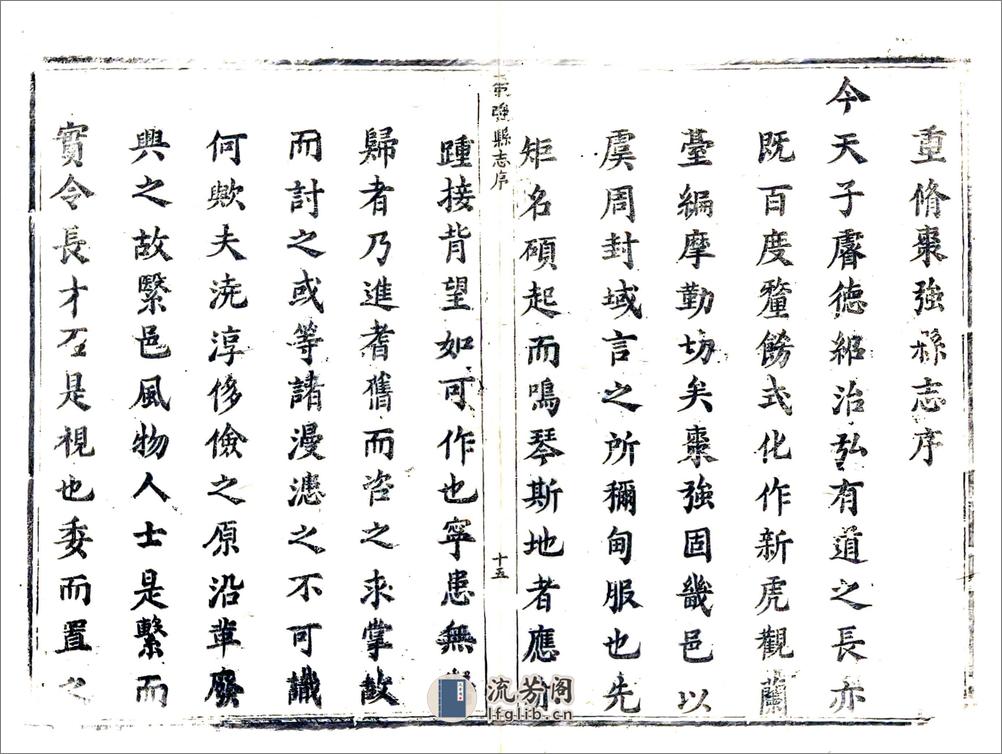 重脩棗強縣志序
今天子膚德紹治弘有道之長亦
既百度釐飭式化作新虎觀蘭
臺編摩勤切矣棗強固畿邑以
虞周封域言之所稱甸服也先
矩名碩起而鳴琴斯地者應
棗強縣志序
十五
踵接背望如可作也寧患無
歸者乃進耆舊而咨之求掌故
而討之或等諸漫漶之不可識
何歟夫澆淳侈儉之原沿革廢
興之故繄邑風物人士是繫而
實令長才不是視也委而置之
流芳阁
lfglib.cn